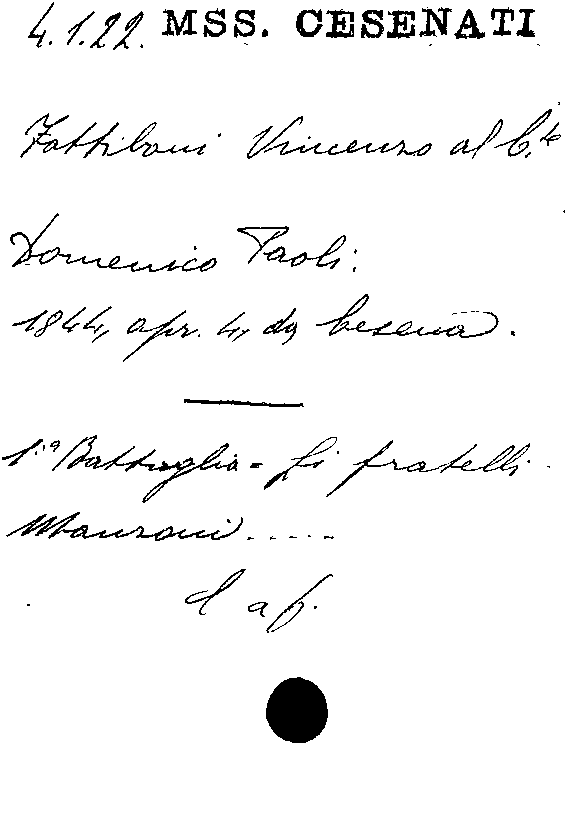 4.1.22. MSS. CESENATI
Fattiboni Vincenzo al C.te
Domenico Paoli.
1844, apr. 4, da Cesena.
1.a Battaglia - Li fratelli
Manzoni.....
a f.